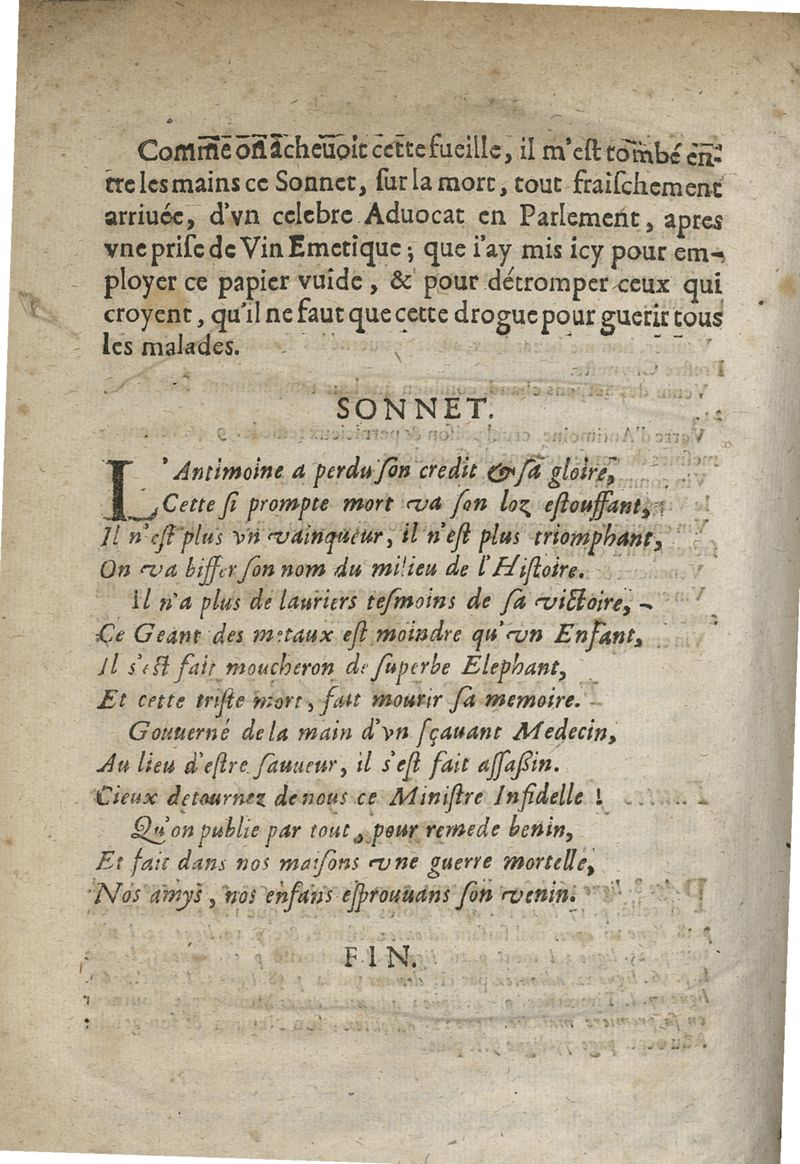 Comme on acheuoit cette fueille, il m'eſt tombé en-
tre les mains ce Sonnet, ſur la mort, tout fraiſchement
arriuée, d'vn celebre Aduocat en Parlement, apres
vne priſe de Vin Emetique; que i'ay mis icy pour em-
ployer ce papier vuide, & pour détromper ceux qui
croyent, qu'il ne faut que cette drogue pour guerir tous
les malades.
SONNET.
L'Antimoine a perdu ſon credit & ſa gloire,
Cette ſi prompte mort va ſon loz eſtouffant,
Il n'eſt plus vn vainqueur, il n'eſt plus triomphant,
On va biffer ſon nom du milieu de l'Hiſtoire.
Il n'a plus de lauriers teſmoins de ſa victoire,
Ce Geant des metaux eſt moindre qu'vn Enfant,
Il s'eſt fait moucheron de ſuperbe Elephant,
Et cette triſte mort, fait mourir ſa memoire.
Gouuerné de la main d'vn ſçauant Medecin,
Au lieu d'eſtre ſauueur, il s'eſt fait aſſaßin.
Cieux detournez de nous ce Miniſtre Infidelle !
Qu'on publie par tout, pour remede benin,
Et fait dans nos maiſons vne guerre mortelle,
Nos amys, nos enfans eſprouuans ſon venin.
FIN.